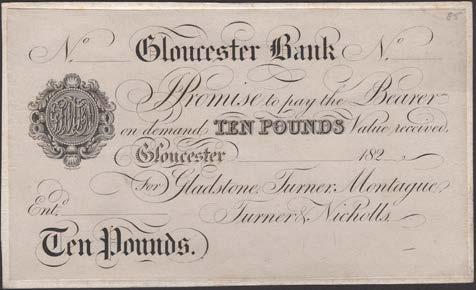 85
N.o Gloucester Bank N.o
I Promise to pay the Bearer
on demand TEN POUNDS Value received.
Gloucester 182
For Gladstone, Turner, Montague,
Ent.d Turner & Nicholls.
Ten Pounds.